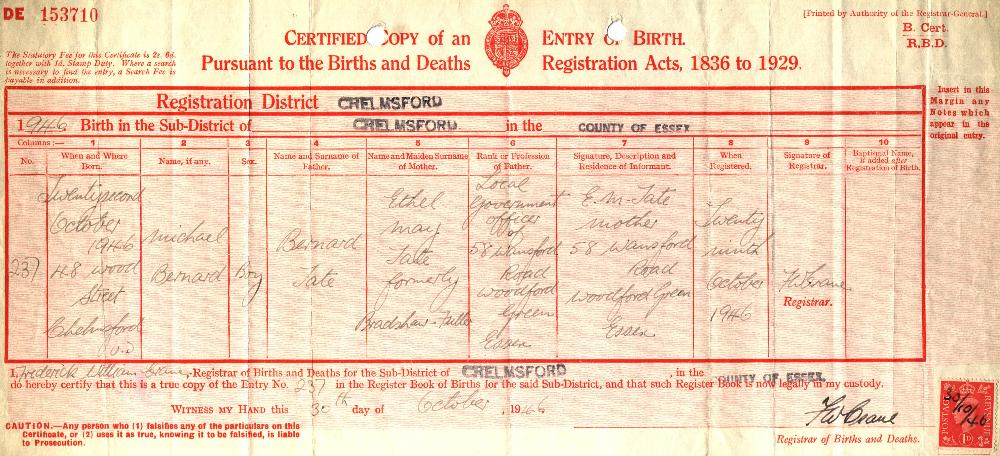 DE 153710
[Printed by Authority of the Registrar-General.]
B. Cert.
R.B.D.
CERTIFIED COPY of an ENTRY OF BIRTH.
Pursuant to the Births and Deaths Registration Acts, 1836 to 1929.
The Statutory Fee for this Certificate is 2s. 6d.
together with 1d. Stamp Duty. Where a search
is necessary to find the entry, a Search Fee is
payable in addition.
Insert in this
Margin any
Notes which
appear in the
original entry.
Registration District CHELMSFORD
1946 Birth in the Sub-District of CHELMSFORD in the COUNTY OF ESSEX
Columns:— 1 2 3 4 5 6 7 8 9 10
No.
When and Where
Born.
Name, if any.
Sex.
Name and Surname of
Father.
Name and Maiden Surname
of Mother.
Rank or Profession
of Father.
Signature, Description and
Residence of Informant.
When
Registered.
Signature of
Registrar.
Baptismal Name,
if added after
Registration of Birth.
237
Twenty second
October
1946
48 Wood
Street
Chelmsford
U.D
Michael
Bernard
Boy
Bernard
Tate
Ethel
May
Tate
formerly
Bradshaw-Fuller
Local
Government
officer
of
58 Wansford
Road
Woodford
Green
Essex
E. M. Tate
mother
58 Wansford
Road
Woodford Green
Essex
Twenty
ninth
October
1946
F W Crane
Registrar.
I, Frederick William Crane, Registrar of Births and Deaths for the Sub-District of CHELMSFORD, in the COUNTY OF ESSEX,
do hereby certify that this is a true copy of the Entry No. 237 in the Register Book of Births for the said Sub-District, and that such Register Book is now legally in my custody.
WITNESS MY HAND this 30th day of October, 1946
CAUTION.—Any person who (1) falsifies any of the particulars on this
Certificate, or (2) uses it as true, knowing it to be falsified, is liable
to Prosecution.
F W Crane
Registrar of Births and Deaths.
30/10/46
POSTAGE
REVENUE
1D